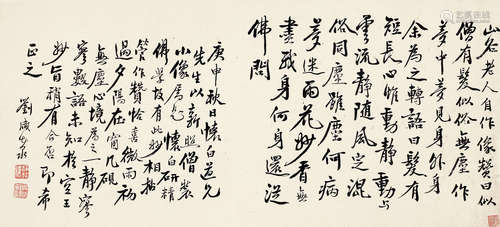 山谷老人自作像贊曰似
僧有髮似俗無塵作
夢中夢見身外身
余為之轉語曰髮有
短長心惟動靜動与
雲流靜隨風定混
俗同塵雖塵何病
夢迷雨花妙香無
盡我身何身還從
佛問
庚申秋日懷白老兄
先生以新照僧裝
小像屬題懷白研精
佛學故有此妙相拈
管作贊恰喜微雨初
過夕陽在窗几硯
無塵心境為之一靜寥
寥數語未知於空王
妙旨稍有合否即希
正之
劉